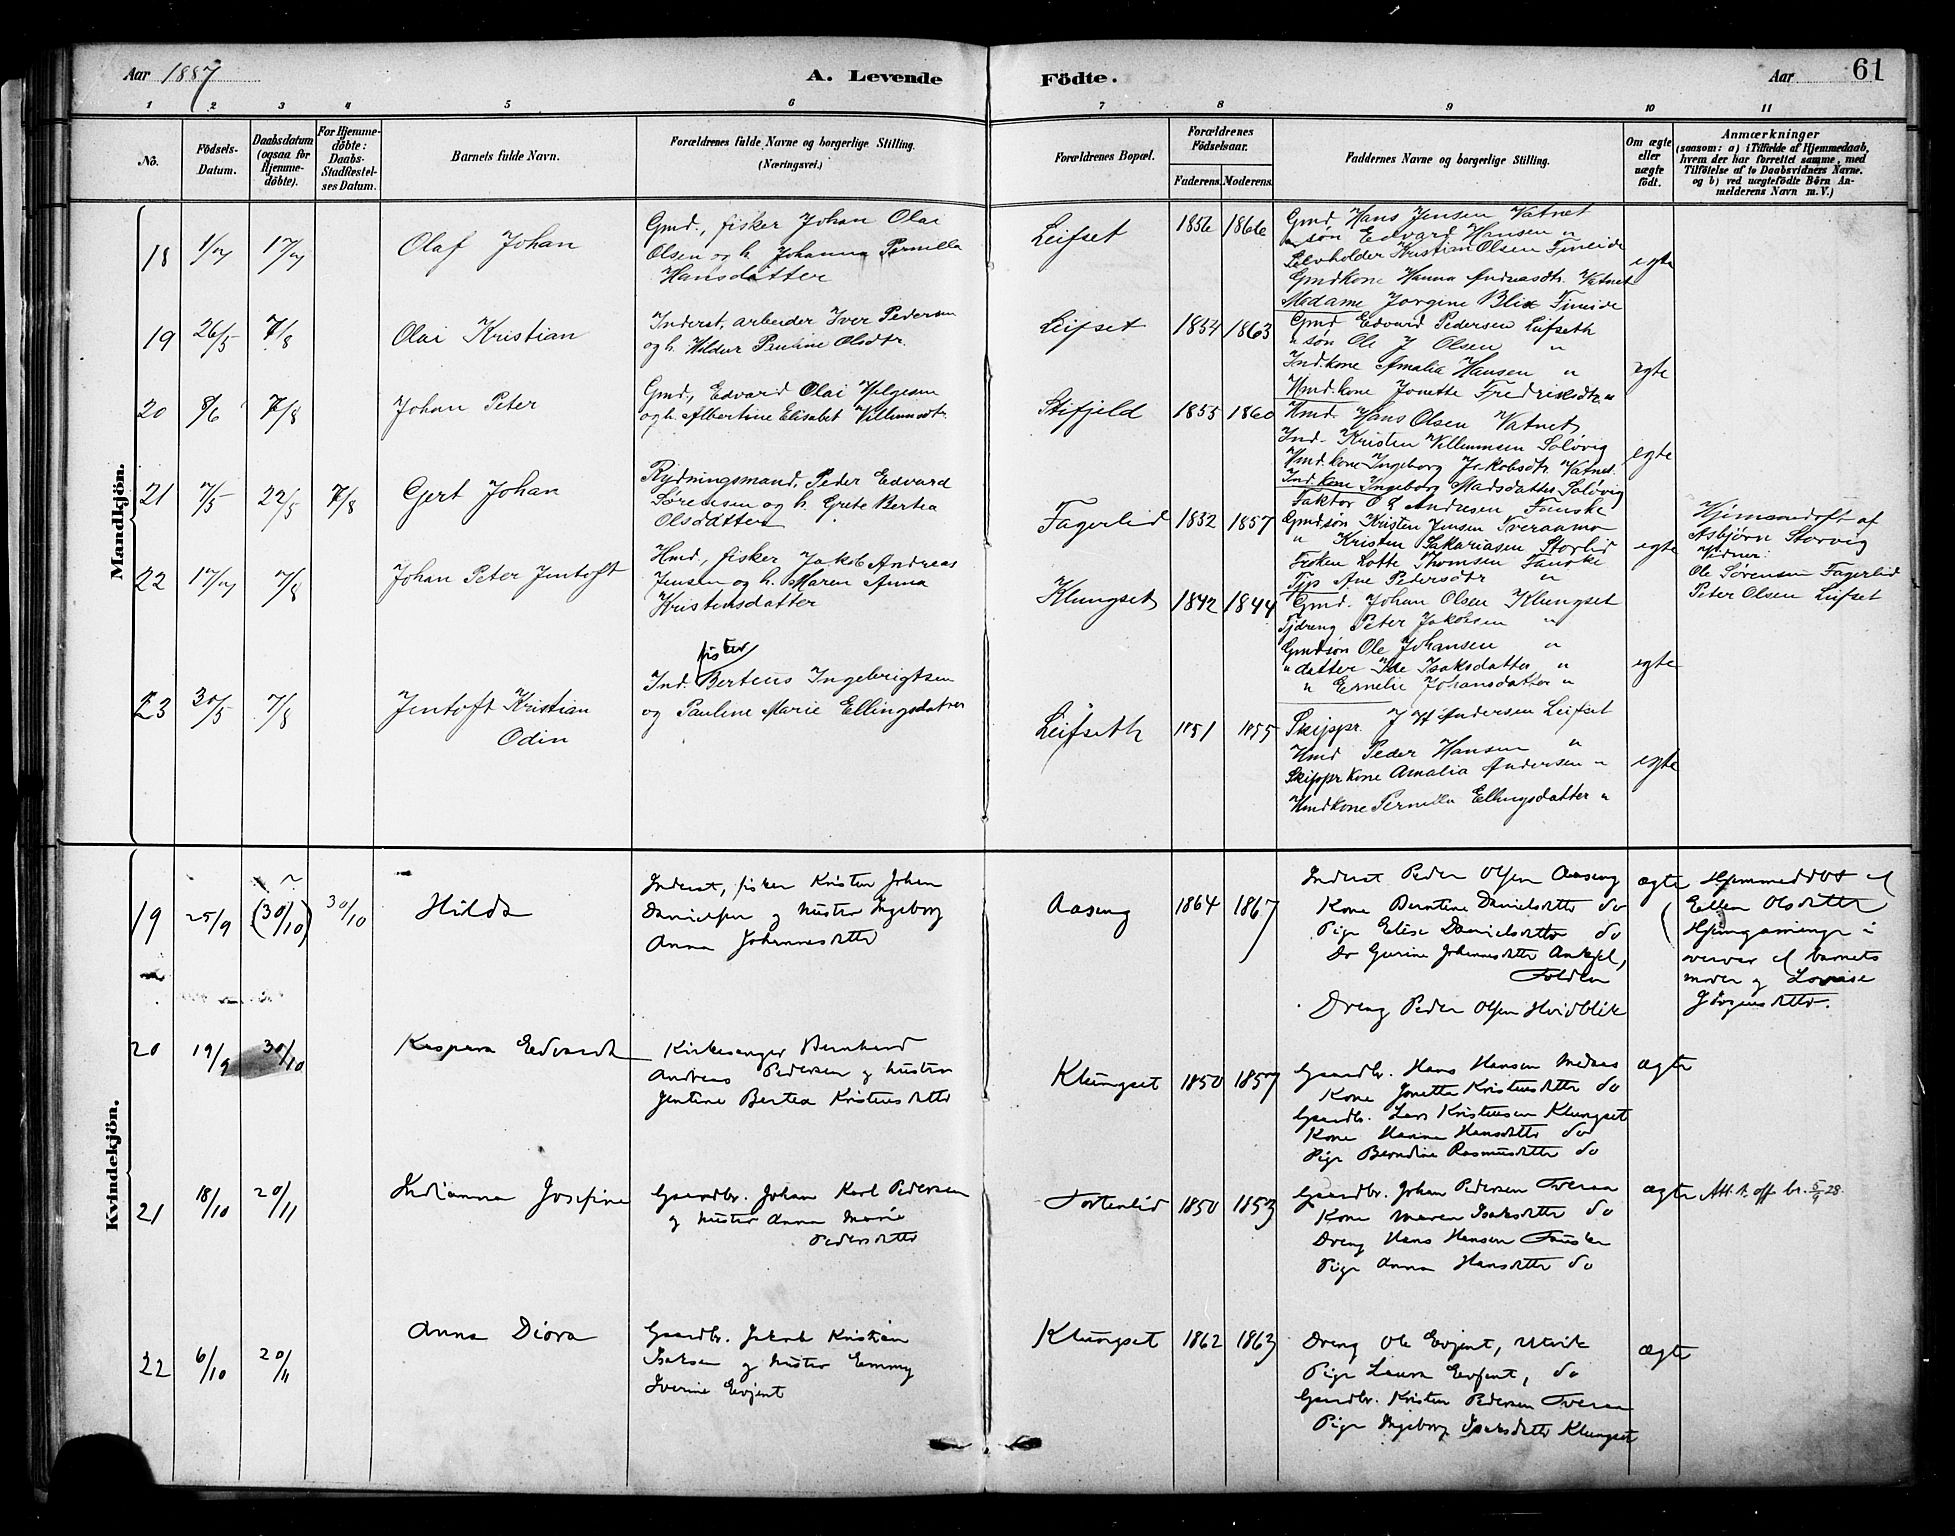 Aar 1887
A. Levende
Födte.
Aar
61
1 2 3 4 5 6 7 8 9 10 11
No.
Födsels-Datum.
Daabsdatum (ogsaa for Hjemme-döbte).
For Hjemme-döbte: Daabs-Stadfæstel-ses Datum.
Barnets fulde Navn.
Forældrenes fulde Navne og borgerlige Stilling.
(Næringsvei.)
Forældrenes Bopæl.
Forældrenes Födselsaar.
Faderens. Moderens.
Faddernes Navne og borgerlige Stilling.
Om ægte eller uægte födt.
Anmærkninger
(saasom: a) i Tilfælde af Hjemmedaab, hvem der har forrettet samme, med Tilföielse af to Daabsvidners Navne. og b) ved uægtefödte Börn An-melderens Navn m. V.)
Mandkjön.
18 1/7 17/7 Olaf Johan
Gmd., fisker Johan Olai
Olsen og h. Johanna Pernella
Hansdatter
Leifset 1856 1866
Gmd Hans Jensen Vatnet
" søn Edvard Hansen "
Selvholder Kristian Olsen Fineide
Gmdkone Hanna Andreasdtr. Vatnet
Madame Jorgine Blix Fineide
egte
19 26/5 7/8 Olai Kristian
Inderst, arbeider Iver Pedersen
og h. Hildur Pauline Olsdtr.
Leifset 1854 1863
Gmd Edvard Pedersen Leifseth
" søn Ole J Olsen "
Ind.kone Amalia Hansen "
Hmd.kone Jonette Fredriksdtr "
egte
20 8/6 7/8 Johan Peter
Gmd, Edvard Olai Helgesen
og h. Albertine Elisabet Villumsdtr.
Stifjeld 1855 1860
Hmd Hans Olsen Vatnet
Ind. Kristen Villumsen Soløvig
Hmd.kone Ingeborg Jakobsdtr. Vatnet
Ind.kone Ingeborg Madsdatter Soløvig
egte
21 7/5 22/5 7/8 Gjert Johan
Rydningsmand, Peder Edvard
Sørensen og h. Grete Bertea
Olsdatter
Fagerlid 1832 1857
Faktor O L Andresen Fauske
Gmdsøn Kristen Jensen Tveraamo
" Kristen Sakariasen Storlid
Frøken Lotte Thomsen Fauske
Tjp Ane Pedersdtr "
egte
Hjemmedøft af
Asbjørn Storvig
Vidner:
Ole Sørensen Fagerlid
Peter Olsen Leifset
22 17/7 7/8 Johan Peter Jentoft
Hmd., fisker Jakob Andreas
Jensen og h. Maren Anna
Kristensdatter
Klungset 1842 1844
Gmd. Johan Olsen Klungset
Tjdreng Peter Jakobsen "
Gmdsøn Ole Johansen "
" datter Ida Isaksdatter "
" Emelie Johansdatter "
egte
23 30/5 7/8 Jentoft Kristian
Odin
fisker
Ind. Berteus Ingebrigtsen
og Pauline Marie Ellingsdatter
Leifseth 1851 1855
Skippr. J H Andersen Leifset
Hmd Peder Hansen "
Skippr kone Amalia Andersen "
Hmdkone Pernella Ellingsdatter "
egte
Kvindekjön.
19 25/9 (30/10) 30/10 Hilda
Inderst, fisker Kristen Johan
Danielsen og hustru Ingeborg
Anna Johannesdatter
Aaseng 1864 1867
Inderst Peder Olsen Aaseng
Kone Berntine Danielsdatter do
Pige Elise Danielsdatter do
Do Gurine Johannesdatter
Folden
Dreng Peder Olsen Hvidblik
ægte
Hjemmedøbt af
Ellen Olsdatter
i
overvær af barnets
moder og Lovise
20 19/9 30/10 Kaspara Edvarda
Kirkesanger Bernhard
Andreas Pedersen og hustru
Jentine Bertea Kristensdatter
Klungset 1850 1857
Gaardbr. Hans Hansen Medaas
Kone Jonetta Kristensdatter do
Gaardbr. Lars Kristensen Klungset
Kone Hanna Hansdatter do
Pige Berndine Rasmusdatter do
ægte
21 18/10 20/11 Indianna Josefine
Gaardbr. Johan Karl Pedersen
og hustru Anna Marie
Pedersdatter
Tortenlid 1850 1853
Gaardbr. Johan Pedersen Tveraa
Kone Maren Isaksdatter do
Dreng Hans Hansen Fauske
Pige Anna Hansdatter do
ægte
Att. t. off. br. 5/9 28.
22 6/10 20/11 Anna Diora
Gaardbr. Jakob Kristian
Isaksen og hustru Emmy
Iverine Evjent
Klungset 1862 1863
Dreng Ole Evjent, Utvik
Pige Laura Evjent, do
Gaardbr. Kristen Pedersen Tveraa
Pige Ingeborg Isaksdatter Klungset
ægte